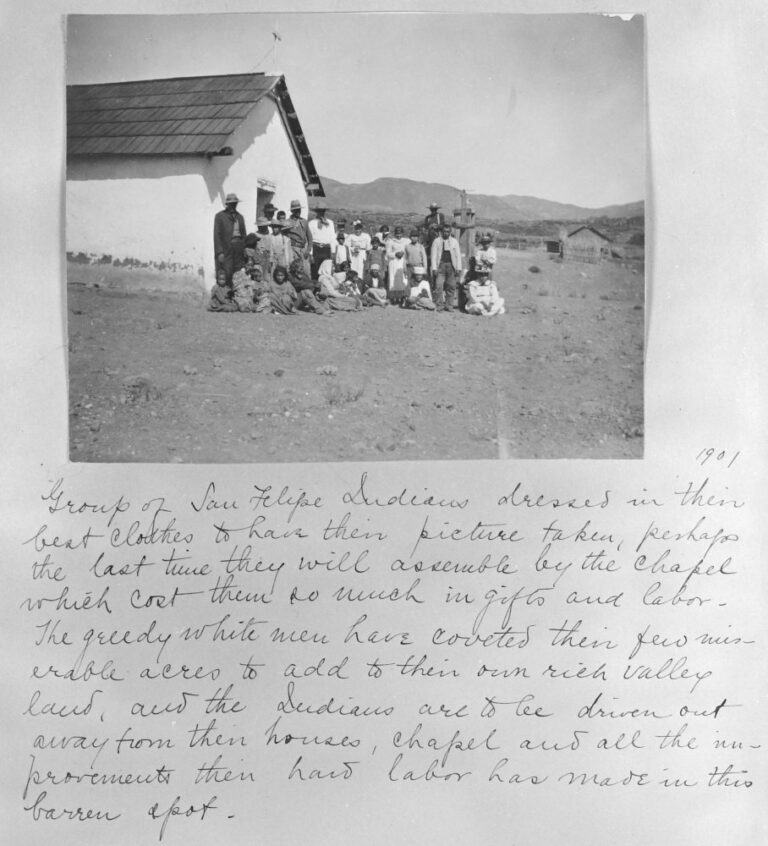 1901
Group of San Felipe Indians dressed in their
best clothes to have their picture taken, perhaps
the last time they will assemble by the chapel
which cost them so much in gifts and labor-
The greedy white men have coveted their few mis-
erable acres to add to their own rich valley
land, and the Indians are to be driven out
away from their houses, chapel and all the im-
provements their hard labor has made in this
barren spot-